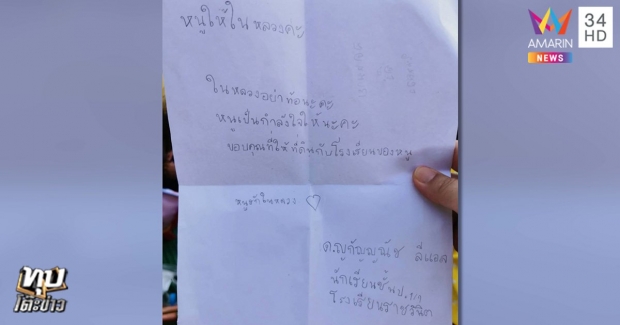 AMARIN
NEWS
34
HD
หนูให้ในหลวงคะ
ในหลวงอย่าท้อนะคะ
หนูเป็นกำลังใจให้นะคะ
ขอบคุณที่ให้ที่ดินกับโรงเรียนของหนู
หนูรักในหลวง ♡
ด.ญ.
นักเรียนชั้นป.
โรงเรียนราชวินิต
ทุบ
โต๊ะข่าว